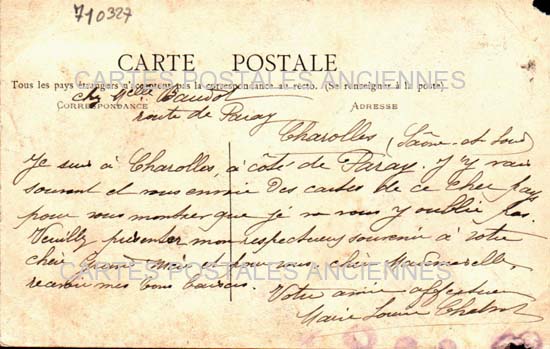 710327
CARTE POSTALE
CARTES POSTALES ANCIENNES
Tous les pays étrangers n'acceptent pas la correspondance au recto. (Se renseigner à la poste).
chez Mlle Baudot
CORRESPONDANCE ADRESSE
route de Paray
Charolles (Saône-et-Loire)
Je suis à Charolles, à côté de Paray. J'y vais
souvent et vous envoie des cartes de ce cher pays
pour vous montrer que je ne vous y oublie pas.
Veuillez présenter mon respectueux souvenir à votre
chère et pour vous chère Mademoiselle,
CARTES POSTALES ANCIENNES
recevoir mes bons baisers.
Votre amie affectueuse
Marie Louise